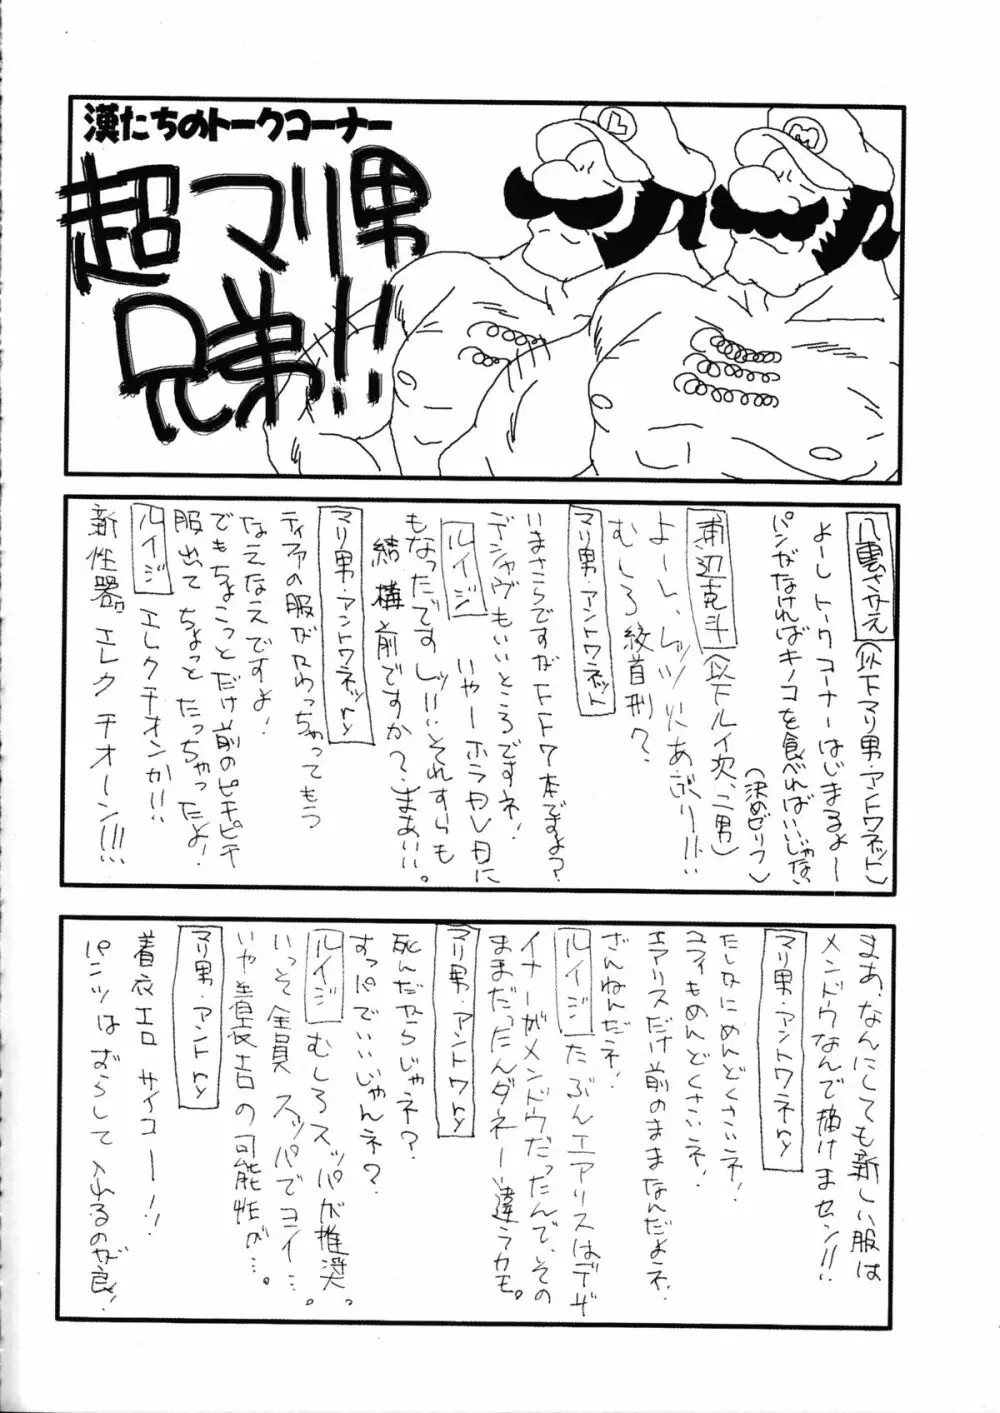 漢たちのトークコーナー
超マリ男
兄弟!!
L
M
八雲さかえ(以下マリ男・アントワネット)
よーしトークコーナーはじまるよー
パンがなければキノコを食べればいいじゃない
(決めゼリフ)
浦辺克斗(以下ルイ次、二男)
よーし、レッツ火あぶりー!!
むしろ絞首刑?
マリ男・アントワネット
いまさらですがFF7本ですよ?
デジャヴもいいところですネ!
ルイジ いやーホラACV日に
もなったですしッ!!それすらも
結構前ですか?、まあいい。
マリ男・アントワネッry
ティファの服がかわっちゃってもう
なえなえですよ!
でもちょこっとだけ前のピチピチ
服出てちょっとたっちゃったよ!
ルイジ エレクチオンか!!
新性器。エレクチオーン!!!
まあ、なんにしても新しい服は
メンドウなんで描けませセン!!
マリ男・アントワネry
たしかにめんどくさいネ!
ユフィもめんどくさいネ!
エアリスだけ前のままなんだよネ、
ざんねんだネ!
ルイジ たぶんエアリスはデザ
イナーがメンドウだったんで、その
ままだったんダネー違うカモ。
マリ男・アントワry
死んだからじゃネ?
すっパでいいじゃんネ?
ルイジ むしろスッパが推奨。
いっそ全員スッパでヨイ…。
いや着衣エロの可能性が…。
マリ男・アントry
着衣エロサイコー!!
パンツはずらして入れるのが良!